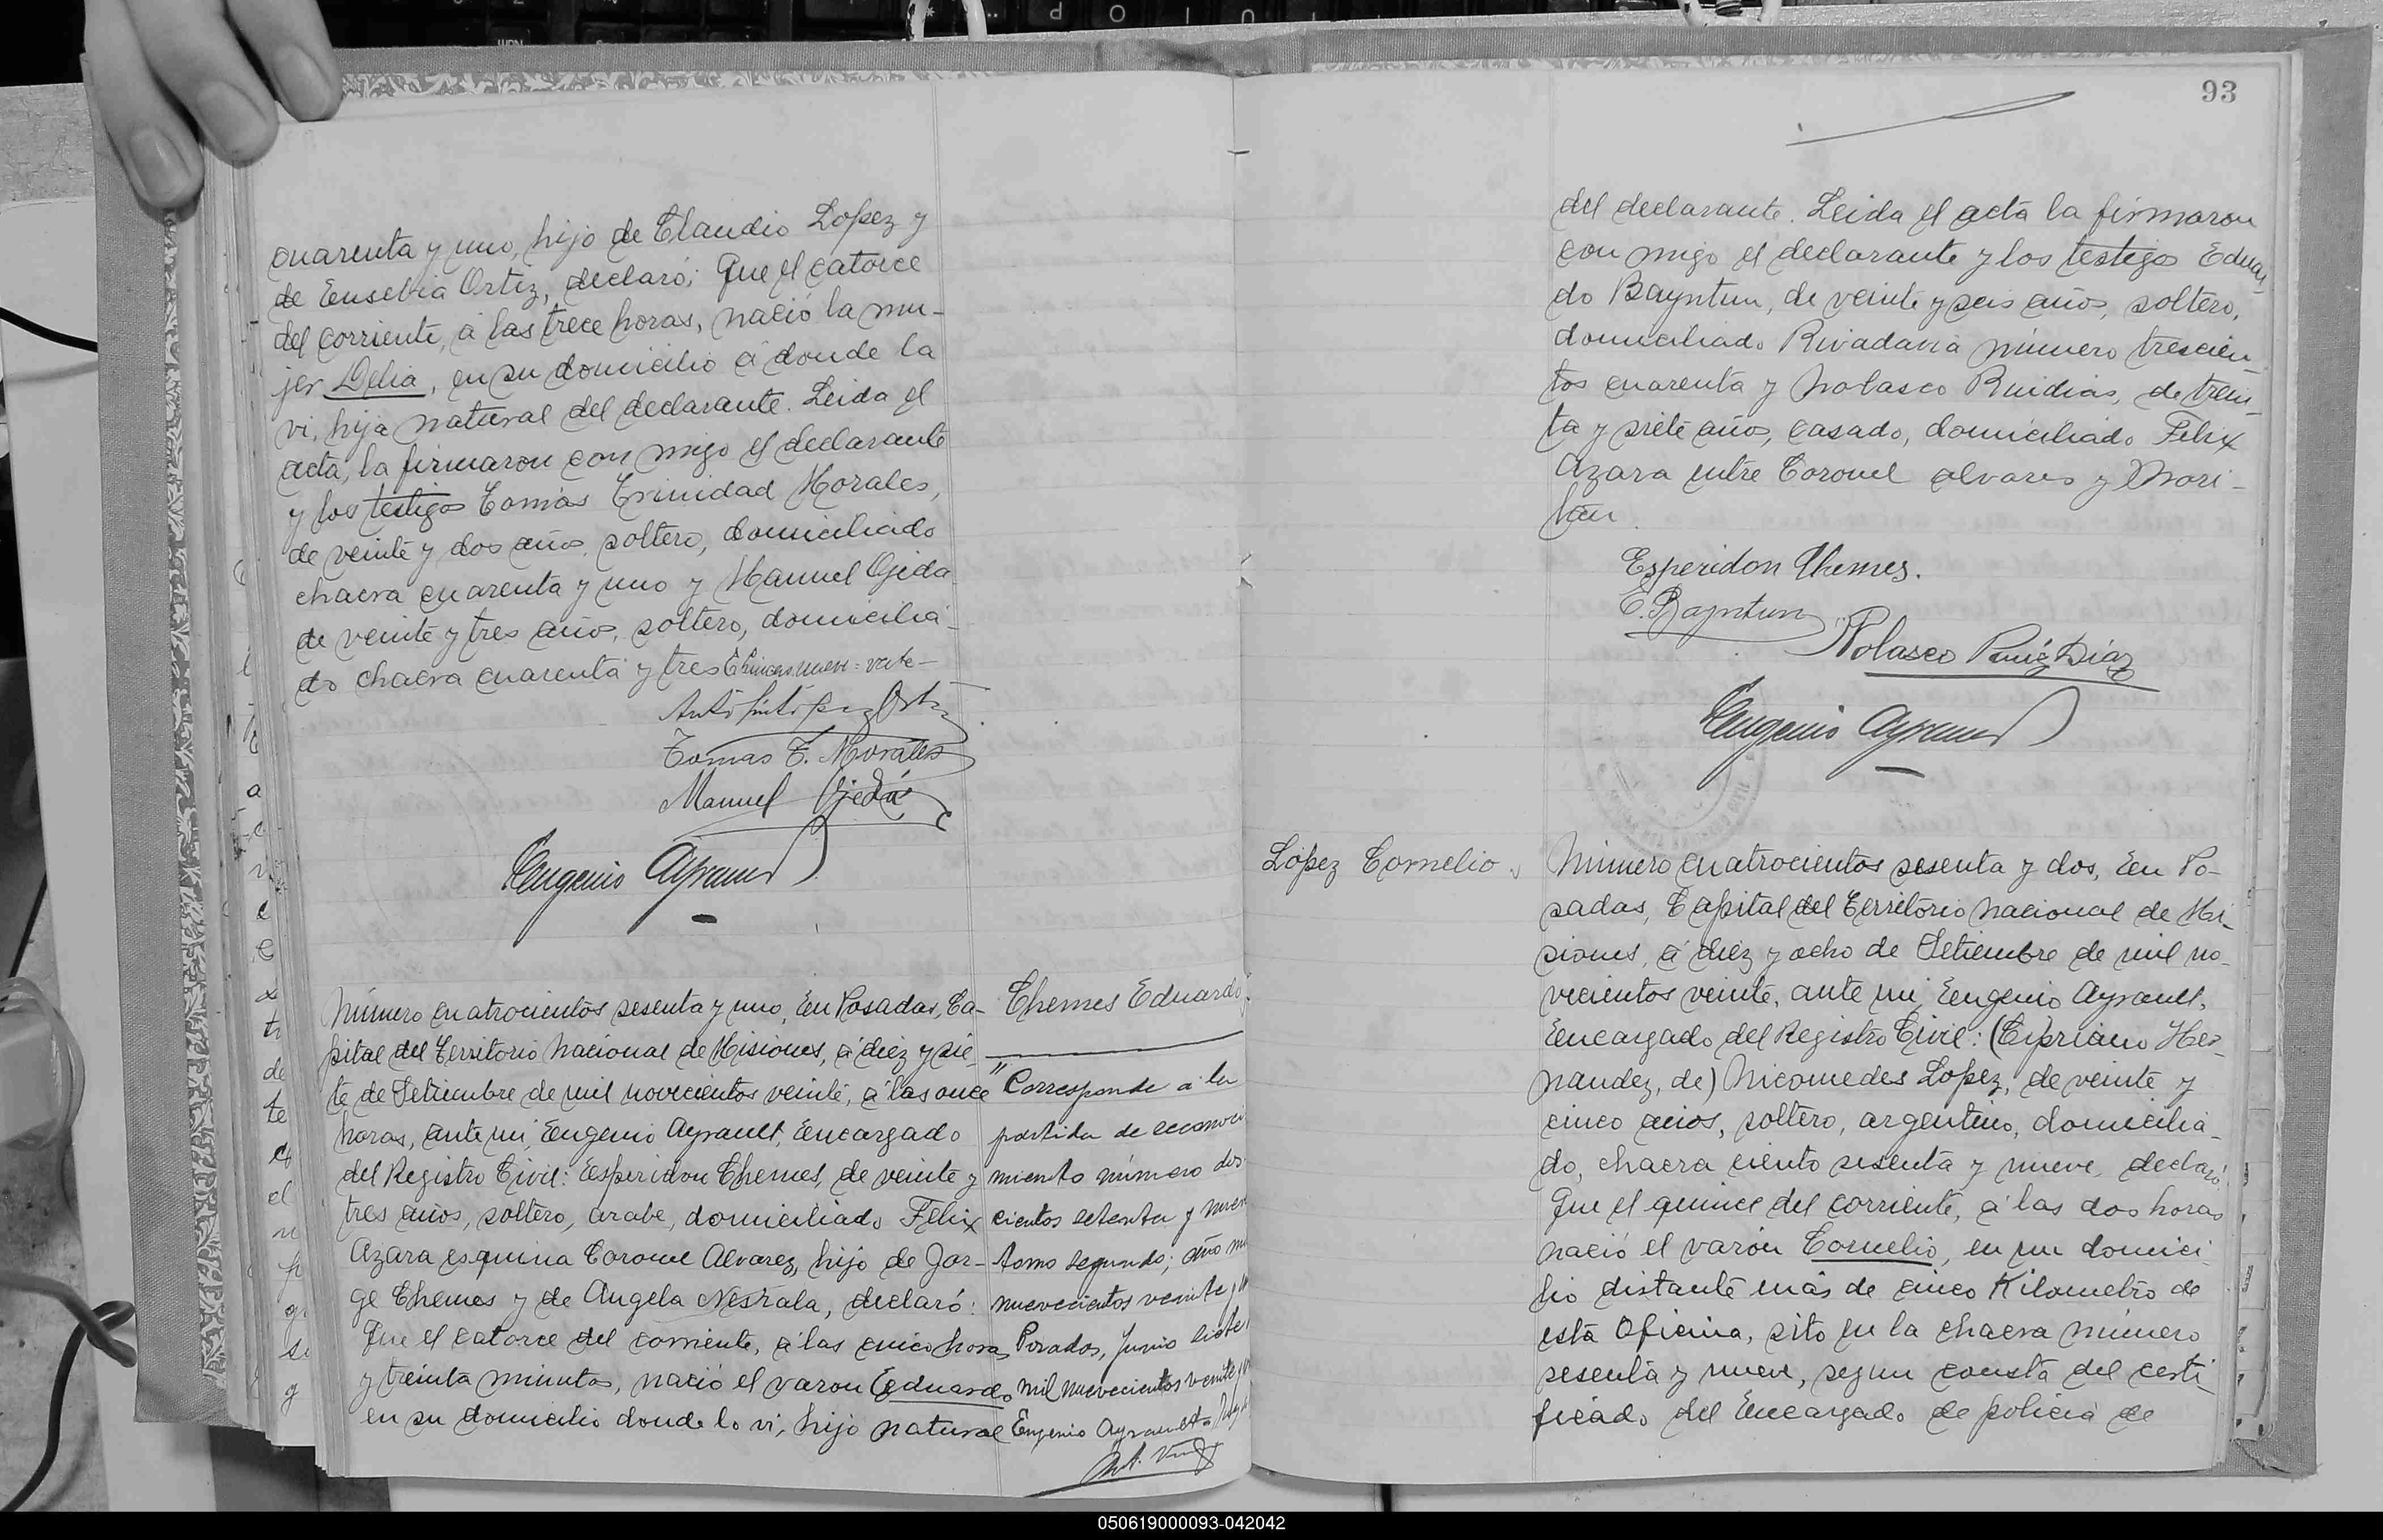 cuarenta y uno, hijo de Claudio Lopez y
de Eusebia Ortiz, declaró; Que el catorce
del corriente, á las trece horas, nació la mu-
jer Delia, en su domicilio á donde la
vi, hija natural del declarante. Leida el
acta, la firmaron con migo el declarante
y los testigos Tomás Trinidad Morales,
de veinte y dos años, soltero, domiciliado
chacra cuarenta y uno y Manuel Ojeda
de veinte y tres años, soltero, domicilia-
do chacra cuarenta y tres
Tomas T. Morales
Manuel Ojeda
Eugenio Ayrault
Número cuatrocientos sesenta y uno, En Posadas, Ca-
pital del Territorio Nacional de Misiones, á diez y sie-
te de Setiembre de mil novecientos veinte, á las once
horas, ante mi, Eugenio Ayrault, Encargado
del Registro Civil: Esperidon Themes, de veinte y
tres años, soltero, arabe, domiciliado Felix
Azara esquina Coronel Alvarez, hijo de Jor-
ge Themes y de Angela Nesrala, declaró:
Que el catorce del corriente, á las cinco horas
y treinta minutos, nació el varon Eduardo
en su domicilio donde lo vi, hijo natural
Themes Eduardo
" Corresponde á la
partida de reconoci
miento número dos
cientos setenta y nueve
tomo segundo; año mil
nuevecientos veinte y
Posadas, Junio siete
mil nuevecientos veinte y
Eugenio Ayrault
93
del declarante. Leida el acta la firmaron
con migo el declarante y los testigos Eduar-
do Bayntun, de veinte y seis años, soltero,
domiciliado Rivadavia número trescien-
tos cuarenta y Nolasco Ruidias, de trein-
ta y siete años, casado, domiciliado Felix
Azara entre Coronel Alvares y Mori-
tan
Esperidon Themes.
E. Bayntun
Nolasco Ruiz Diaz
Eugenio Ayrault
López Cornelio
Número cuatrocientos sesenta y dos, En Po-
sadas, Capital del Territorio Nacional de Mi-
siones, á diez y ocho de Setiembre de mil no-
vecientos veinte, ante mi, Eugenio Ayrault,
Encargado del Registro Civil: (Cipriano Her-
nandez, de) Nicomedes Lopez, de veinte y
cinco años, soltero, argentino, domicilia-
do, chacra ciento sesenta y nueve, declaró:
Que el quince del corriente, á las dos horas
nació el varón Cornelio, en su domici-
lio distante más de cinco Kilometro de
esta Oficina, sito en la chacra número
sesenta y nueve, segun consta del certi-
ficado del Encargado de policia de
050619000093-042042